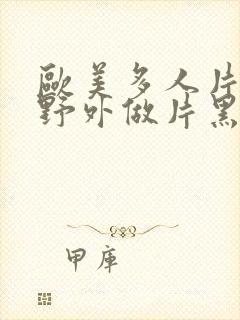 歐美多人片
野外做片黑
甲庫